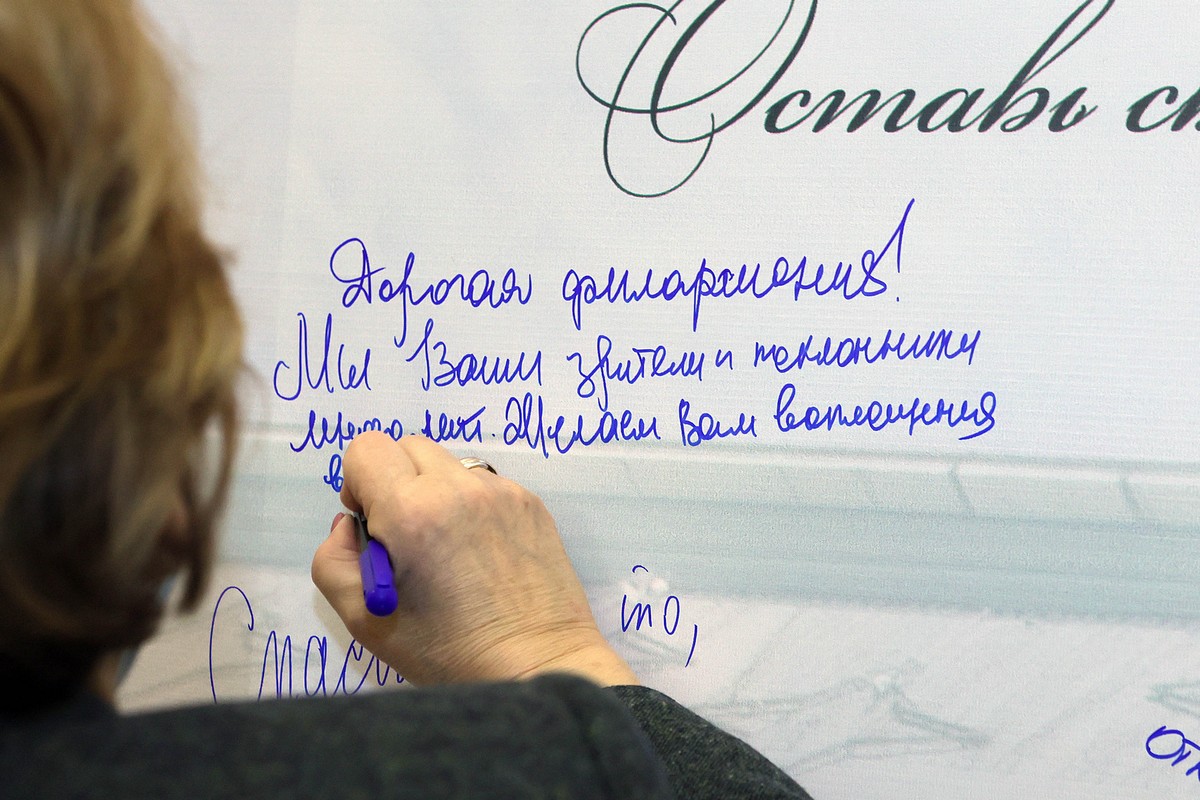 Оставь ст
Дорогая филармония!
Мы Ваши зрители и поклонники
много лет. Желаем Вам воплощения
в
Спаси то,
отк